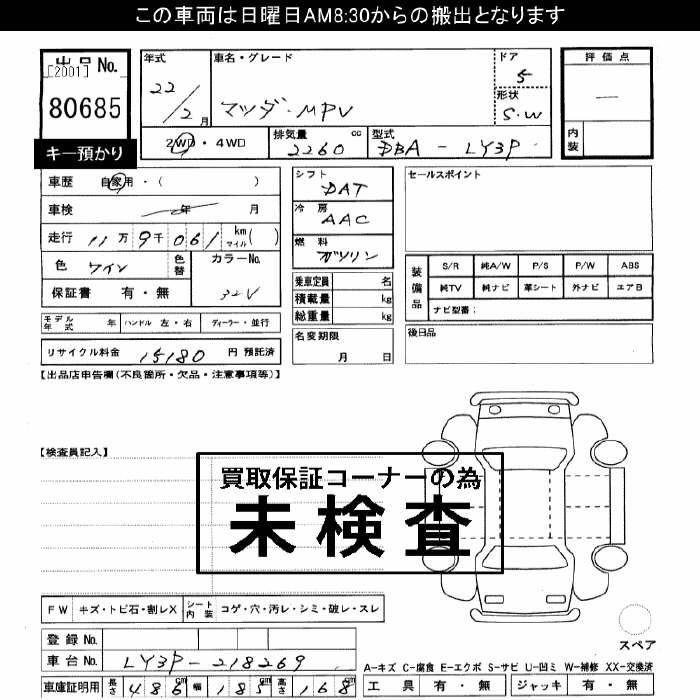 この車両は日曜日AM8:30からの搬出となります
出品No.
[2001]
80685
キー預かり
年式
22/2月
車名・グレード
マツダ・MPV
ドア
5
形状
S.W
評価点
—
内装
2WD・4WD
排気量 2260 cc
型式 DBA - LY3P
車歴 自家用・( )
車検 年 月
走行 11万9千061 km マイル( )
色 ワイン 色替
カラーNo. 32V
保証書 有・無
モデル年式 年 ハンドル 左・右 ディーラー・並行
リサイクル料金 15180 円 預託済
シフト DAT
冷房 AAC
燃料 ガソリン
乗車定員 名
積載量 kg
総重量 kg
名変期限 月 日
セールスポイント
装備品
S/R 純A/W P/S P/W ABS
純TV 純ナビ 革シート 外ナビ エアB
ナビ型番:
後日品
【出品店申告欄(不良箇所・欠品・注意事項等)】
【検査員記入】
買取保証コーナーの為
未検査
FW キズ・トビ石・割レX シート内装 コゲ・穴・汚レ・シミ・破レ・スレ
登録No.
車台No. LY3P-218269
車庫証明用 長さ 486cm 幅 185cm 高さ 168cm
スペア
A-キズ C-腐食 E-エクボ S-サビ U-凹ミ W-補修 XX-交換済
工具 有・無 ジャッキ 有・無